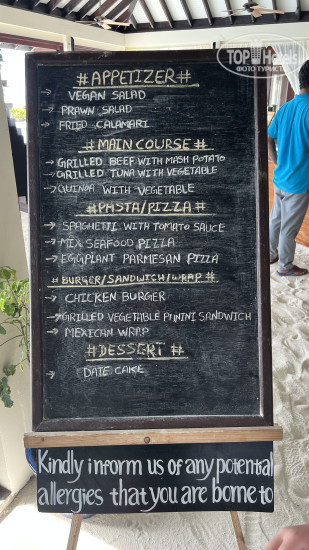 TOPHotels
ФОТО ТУРИСТА
#APPETIZER#
→ VEGAN SALAD
→ PRAWN SALAD
→ FRIED CALAMARI
#MAIN COURSE#
→ GRILLED BEEF WITH MASH POTATO
→ GRILLED TUNA WITH VEGETABLE
→ QUINOA WITH VEGETABLE
#PASTA/PIZZA#
→ SPAGHETTI WITH TOMATO SAUCE
→ MIX SEAFOOD PIZZA
→ EGGPLANT PARMESAN PIZZA
#BURGER/SANDWICH/WRAP#
→ CHICKEN BURGER
→ GRILLED VEGETABLE PANINI SANDWICH
→ MEXICAN WRAP
#DESSERT#
→ DATE CAKE
Kindly inform us of any potential
allergies that you are borne to